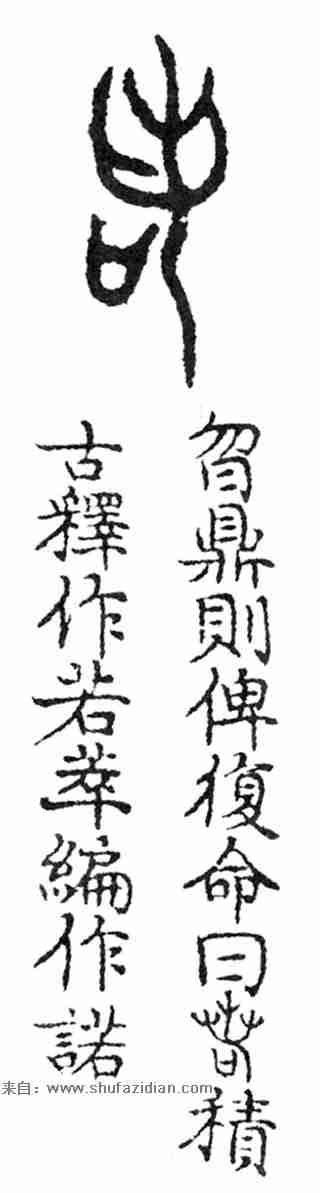 曶鼎則俾復命曰積
古釋作若萃編作諾
来自：www.shufazidian.com